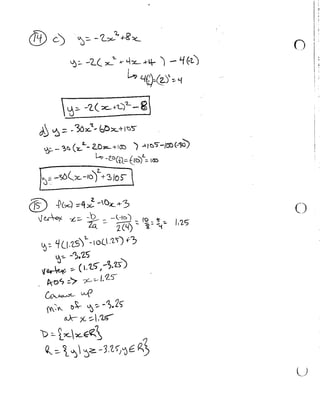 14 c) y = -2x² + 8x
y = -2(x² - 4x + 4 ) - 4(-2)
↳ 4(½)=(2)² = 4
y = -2(x+2)² - 8
d) y = -30x² - 60x + 105
y = -30(x² - 20x + 100 ) + 105 - 100(-30)
↳ -20(½) = (-10)² = 100
y = -30(x-10)² + 3105
15 f(x) = 4x² - 10x + 3
Vertex x = -b/2a = -(-10)/2(4) = 10/8 = 5/4 = 1.25
y = 4(1.25)² - 10(1.25) + 3
y = -3.25
Vertex = (1.25, -3.25)
AOS => x = 1.25
Concave up
min of y = -3.25
at x = 1.25
D = {x|x∈R}
R = {y|y≥ -3.25, y∈R}